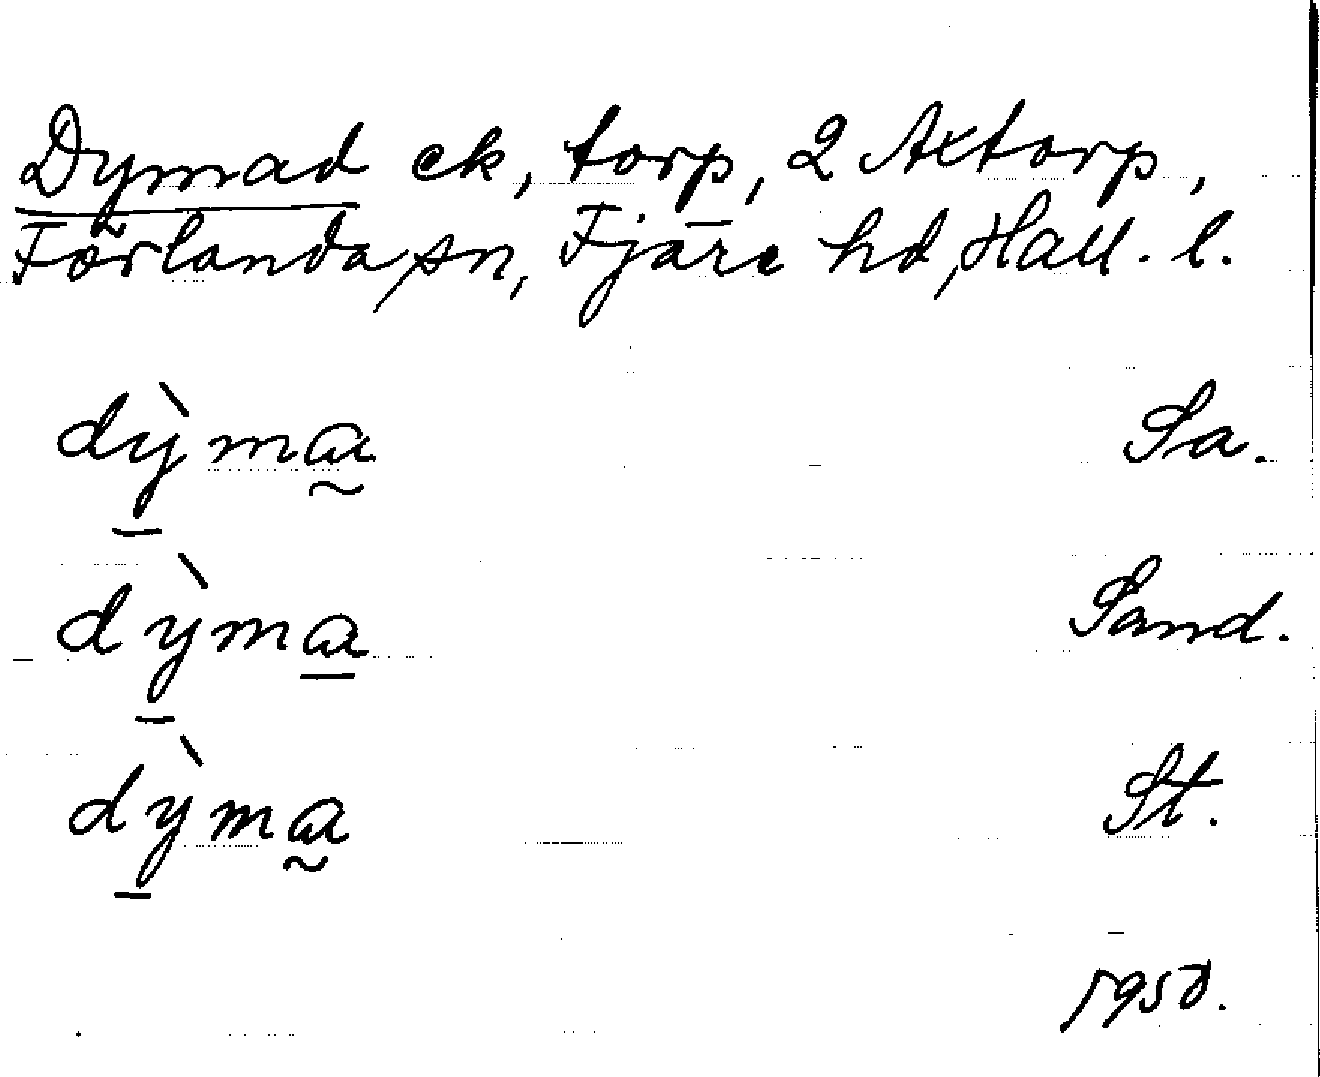 Dymad ek, torp, 2 Axtorp,
Förlanda sn, Fjäre hd, Hall. l.
dỳma̰ Sa.
dỳma̲ Sand.
dỳma̰ St.
1950.